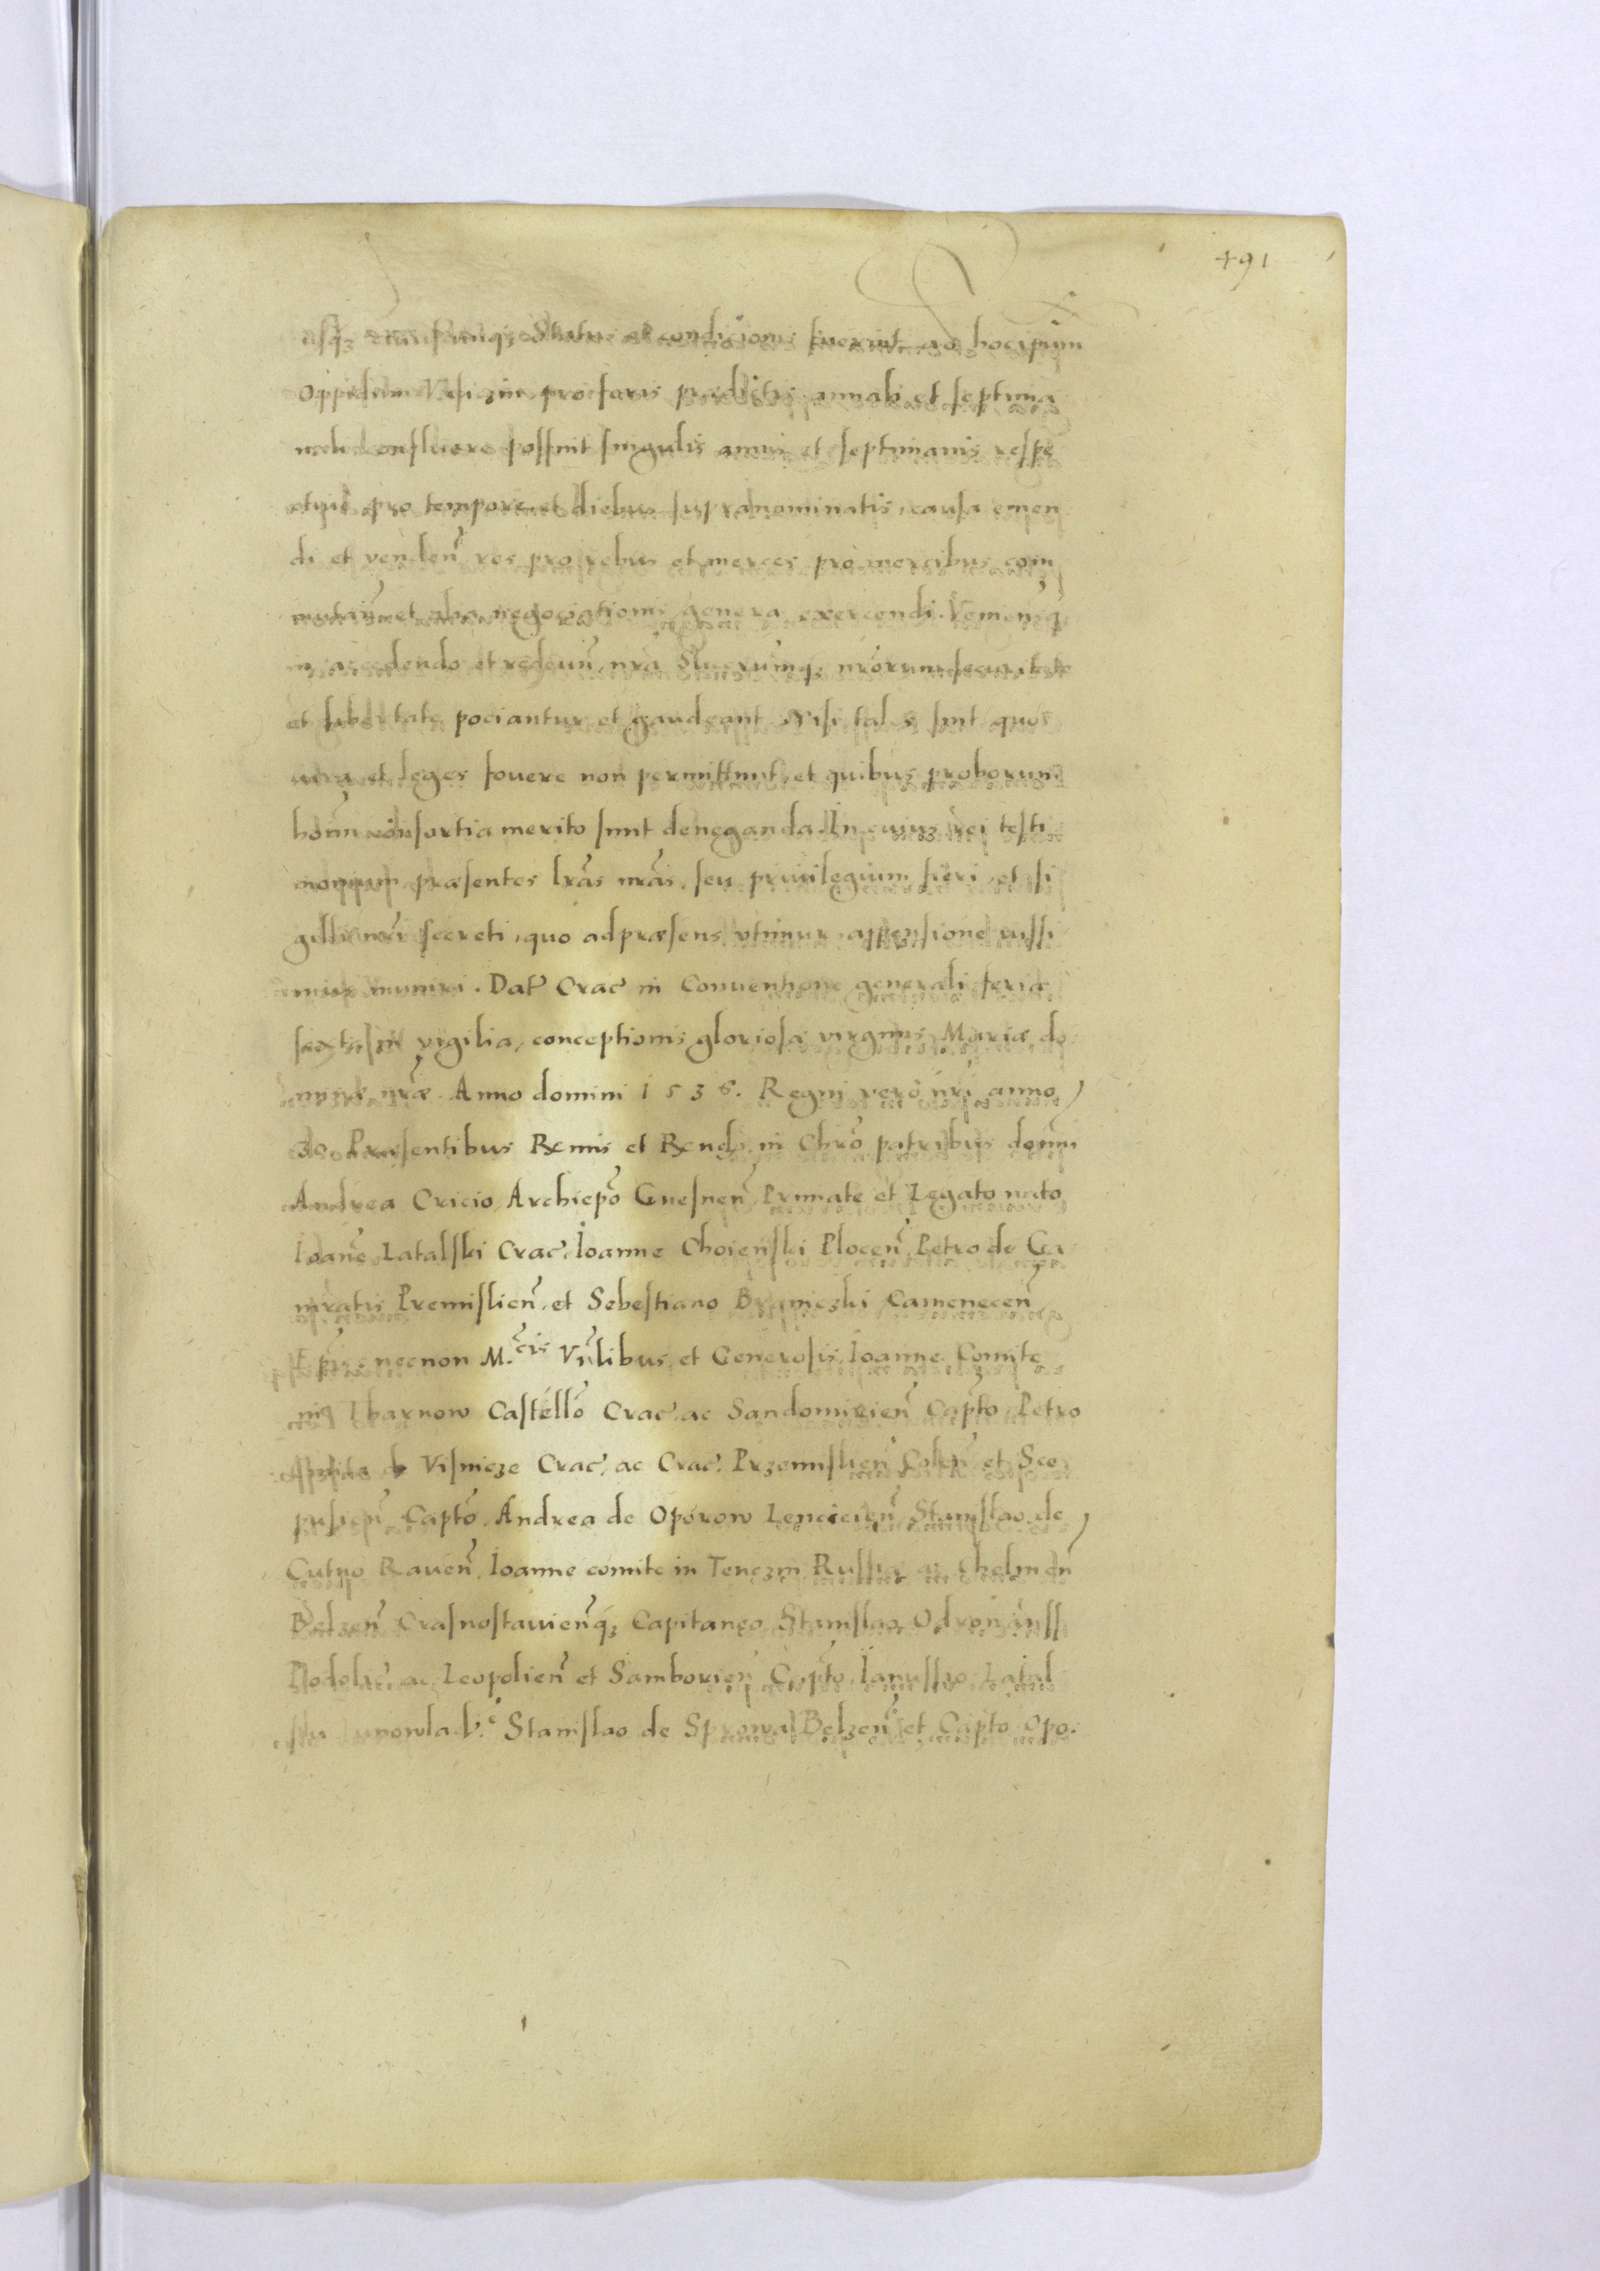 491
status et condicionis fuerint ad hoc ipsum
oppidum pro foris prædictis annali et septima
nali confluere possint singulis annis et septimanis respe
ctiue pro tempore et diebus supranominatis, causa emen
di et venden̄ res pro rebus et merces pro mercibus com
mutan̄ et alia negociationis genera exercendi. Veniens̄q;
in accedendo et redeun̄, nr̄a nr̄orum securitate
et libertate pociantur et gaudeant. Nisi tales sint quos
iura et leges fouere non permittunt, et quibus proborum
hoīm consortia merito sunt deneganda. In cuius rei testi
monium præsentes lr̄as nr̄as, seu priuilegium fieri, et si
gilli nr̄i secreti, quo ad præsens vtimur appensione iussi
mus muniri. Dat̄ Crac̄ in Conuentione generali feria
sexta in vigilia, conceptionis gloriosæ virginis Mariæ do
minæ nr̄æ. Anno domini 1536. Regni vero nr̄i anno
30. Præsentibus Rx̄mis et Rx̄ndis in Chr̄o patribus domīs
Andrea Cricio Archiep̄o Gnesnen̄ Primate et Legato nato
Ioan̄e Latalski Crac̄, Ioanne Choienski Plocen̄ Petro de Ga
mratis Premislien̄, et Sebestiano Branieczki Camenecen̄
Ep̄is necnon M.cis Vn̄libus et Generosis, Ioanne Comite
in Tharnow Castellō Crac̄ ac Sandomirien̄ Capt̄o Petro
de Visnicze Crac̄, ac Crac̄. Przemislien̄ et Sce
pusien̄ Capt̄o, Andrea de Oporow Lencicien̄ Stanislao de
Cutno Rauen̄ Ioanne comite in Tenczin Russiæ ac Chelmen̄
Belzen̄ Crasnostauien̄q; Capitaneo Stanislao Odrowanss
Podoliæ ac Leopolien̄ et Samborien̄ Capt̄o, Ianussio Latal
ski Stanislao de Sprowa Belzen̄ et Capt̄o Opo.